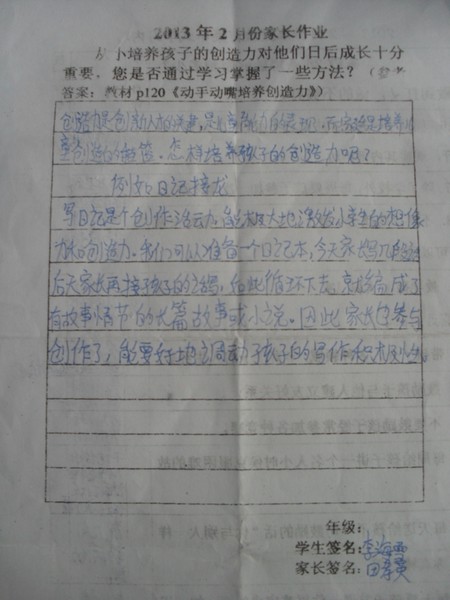 2013年2月份家长作业
从小培养孩子的创造力对他们日后成长十分
重要，您是否通过学习掌握了一些方法？（参考
答案：教材p120《动手动嘴培养创造力》）
创造力是创新人才的关键，是 能力的表现，而家庭是培养儿
童创造的摇篮。怎样培养孩子的创造力呢？
例如日记接龙
写日记是个创作活动，能极大地激发小学生的想像
力和创造力。我们可以准备一个日记本，今天家长写几段话
后天家长再接孩子的话，如此循环下去，就能编成了
有故事情节的长篇故事或小说。因此家长的参与
创作了，能更好地调动了孩子的写作积极性
年级：
学生签名：李海雪
家长签名：田